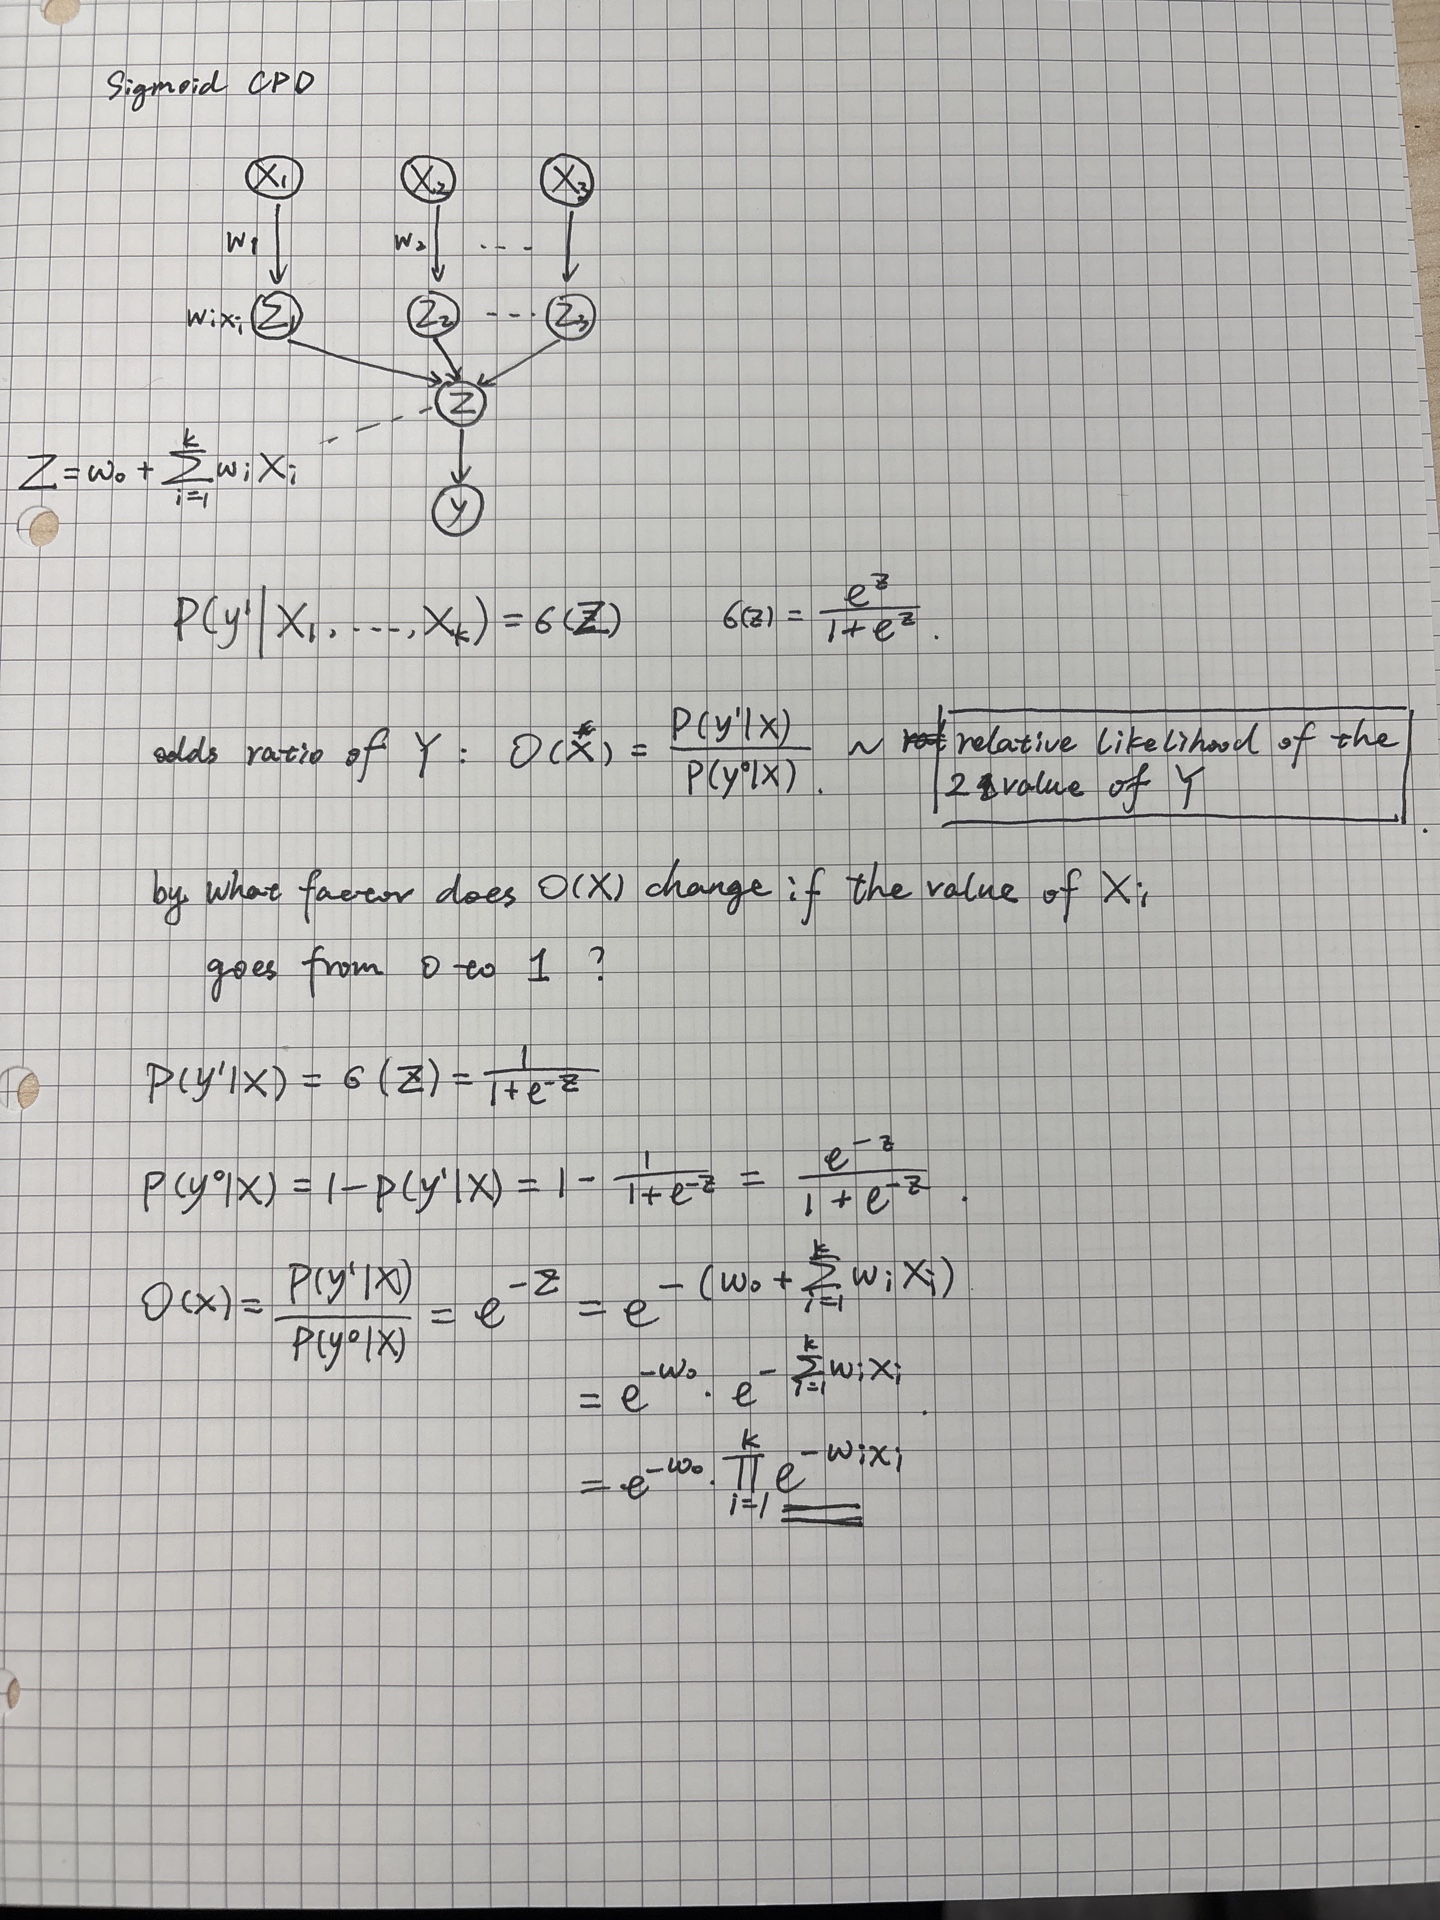 Sigmoid CPD
X₁ X₂ X₃
w₁ w₂ ----
wᵢxᵢ Z₁ Z₂ --- Z₃
Z
Z = w₀ + ∑ᵢ₌₁ᵏ wᵢ Xᵢ
Y
P(y¹ | X₁, ...., Xₖ) = σ(Z) σ(z) = e^z / (1 + e^z) .
odds ratio of Y : O(X) = P(y¹|X) / P(y⁰|X) . ~ relative likelihood of the
2 value of Y
by what factor does O(X) change if the value of Xᵢ
goes from 0 to 1 ?
P(y¹|X) = σ(Z) = 1 / (1 + e^-z)
P(y⁰|X) = 1 - P(y¹|X) = 1 - 1 / (1 + e^-z) = e^-z / (1 + e^-z) .
O(X) = P(y¹|X) / P(y⁰|X) = e^-z = e^-(w₀ + ∑ᵢ₌₁ᵏ wᵢ Xᵢ)
= e^-w₀ · e^-∑ᵢ₌₁ᵏ wᵢxᵢ .
= e^-w₀ · ∏ᵢ₌₁ᵏ e^-wᵢxᵢ